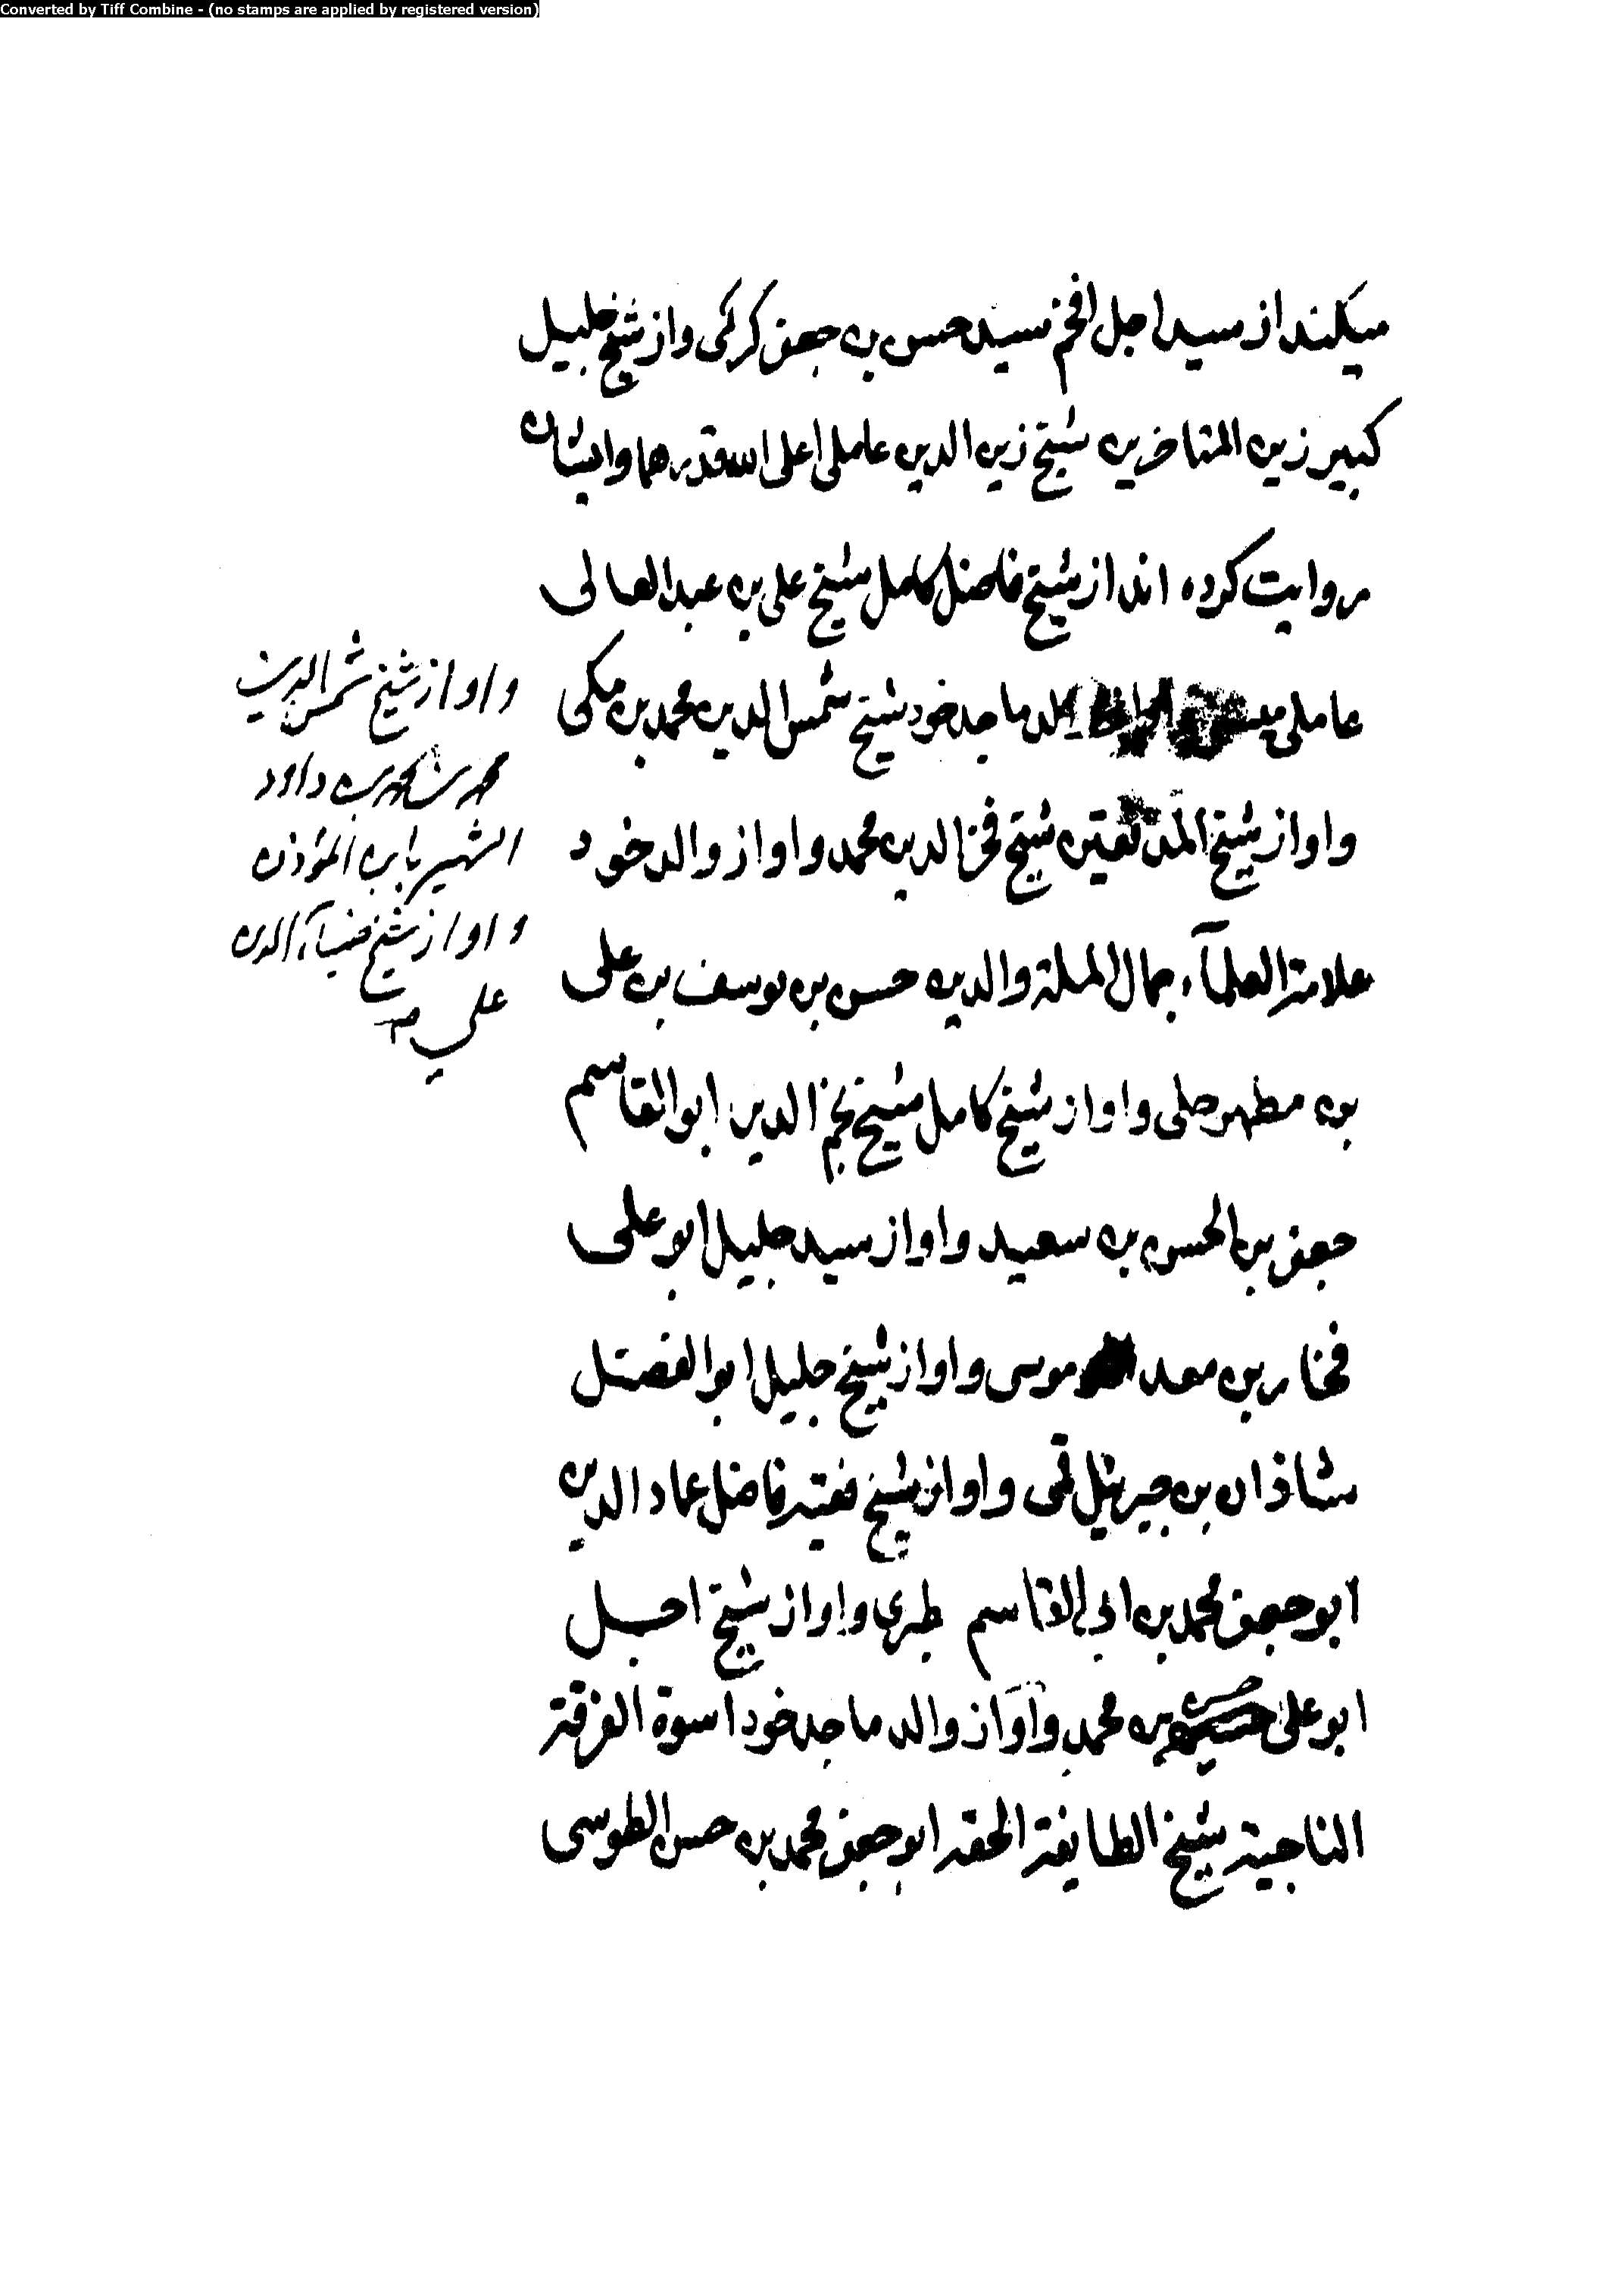 Converted by Tiff Combine - (no stamps are applied by registered version)
میکند از سید اجل افخم سید حسن بن جعفر کرکی و از شیخ جلیل
کبیر زین المتاخرین شیخ زین الدین عاملی اعلی الله قدرهما و ایشان
روایت کرده اند از شیخ فاضل کامل شیخ علی بن عبد العالی
عاملی والد ماجد خود شیخ شمس الدین محمد بن مکی
و او از شیخ المدققین شیخ فخر الدین محمد و او از والد خود
علامة العلمآء جمال الملة والدین حسن بن یوسف بن علی
بن مطهر حلی و او از شیخ کامل شیخ نجم الدین ابو القاسم
جعفر بن الحسن بن سعید و او از سید جلیل ابو علی
فخار بن معد موسی و او از شیخ جلیل ابو الفضل
شاذان بن جبرئیل قمی و او از شیخ فقیه فاضل عماد الدین
ابو جعفر محمد بن ابی القاسم طبری و او از شیخ اجل
ابو علی حسن بن محمد و او از والد ماجد خود اسوة الفرقة
الناجیة شیخ الطایفة الحقه ابو جعفر محمد بن حسن الطوسی
و او از شیخ شمس الدین
محمد بن محمد بن داود
الشهیر بابن المؤذن
و او از شیخ ضیآء الدین
علی